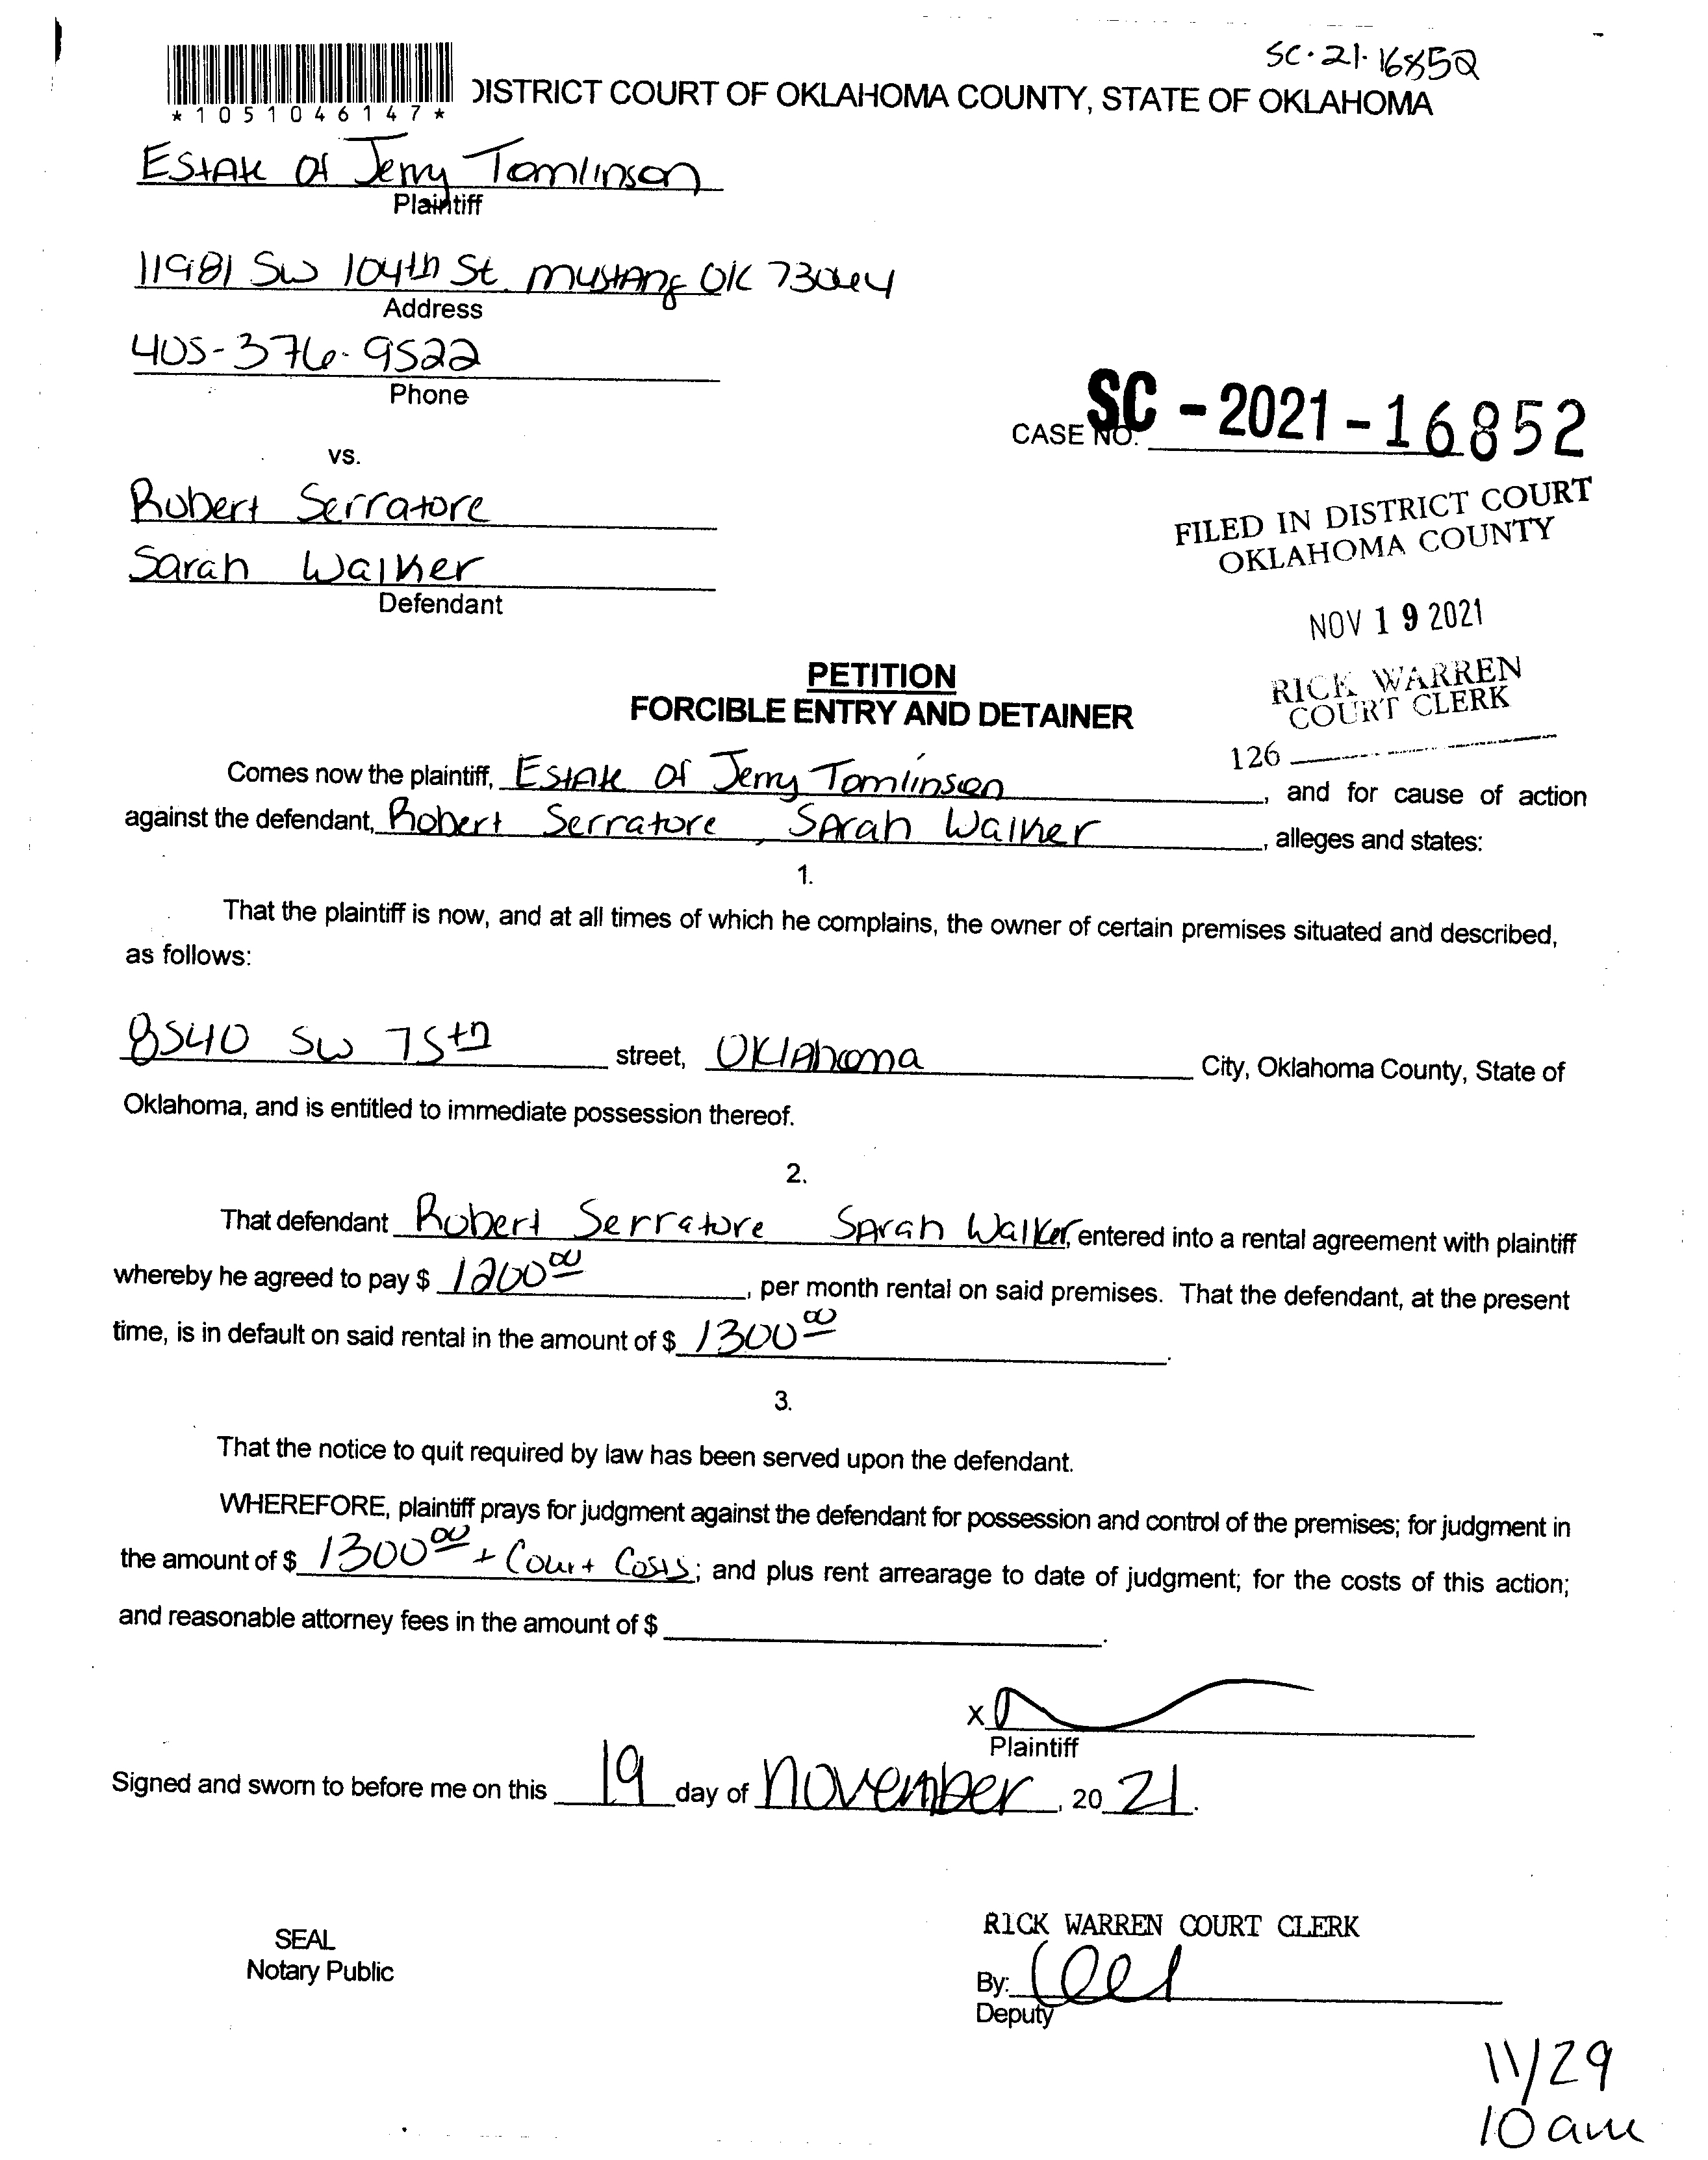 SC-21-16852
*1051046147*
DISTRICT COURT OF OKLAHOMA COUNTY, STATE OF OKLAHOMA
Estate of Jerry Tomlinson
Plaintiff
11981 SW 104th St. Mustang OK 73064
Address
405-376-9522
Phone
CASE NO. SC-2021-16852
vs.
Robert Serratore
Sarah Walker
Defendant
FILED IN DISTRICT COURT
OKLAHOMA COUNTY
NOV 19 2021
RICK WARREN
COURT CLERK
126
PETITION
FORCIBLE ENTRY AND DETAINER
Comes now the plaintiff, Estate of Jerry Tomlinson, and for cause of action
against the defendant, Robert Serratore, Sarah Walker, alleges and states:
1.
That the plaintiff is now, and at all times of which he complains, the owner of certain premises situated and described,
as follows:
8540 SW 75th street, Oklahoma City, Oklahoma County, State of
Oklahoma, and is entitled to immediate possession thereof.
2.
That defendant Robert Serratore Sarah Walker, entered into a rental agreement with plaintiff
whereby he agreed to pay $ 1200 00, per month rental on said premises. That the defendant, at the present
time, is in default on said rental in the amount of $ 1300 00.
3.
That the notice to quit required by law has been served upon the defendant.
WHEREFORE, plaintiff prays for judgment against the defendant for possession and control of the premises; for judgment in
the amount of $ 1300 00 + Court Costs; and plus rent arrearage to date of judgment; for the costs of this action;
and reasonable attorney fees in the amount of $
X
Plaintiff
Signed and sworn to before me on this 19 day of November, 20 21.
SEAL
Notary Public
RICK WARREN COURT CLERK
By:
Deputy
11/29
10 am